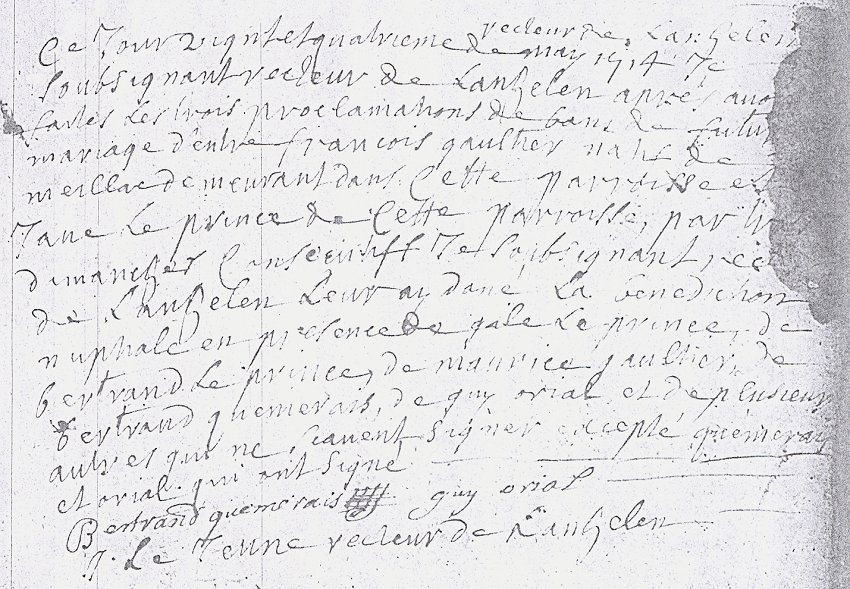 recteur de Lanhelen
Ce Jour vignt et quatrieme de may 1714 Je
soubsignant recteur de Lanhelen aprés avo
faites les trois proclamations de bans de futur
mariage d'entre francois gaultier natif de
meillac demeurant dans Cette parroisse et
Jane Le prince de Cette parroisse, par tr
dimanches Consecutiff Je soubsignant rec
de Lanhelen Leur ay donne La benediction
nuptiale en presence de gile Le prince, de
bertrand Le prince, de maurice gaultier de
bertrand quemerais, de guy orial et de plusieurs
autres qui ne scavent signer excepté quemerais
et orial qui ont signé
Bertrand quemerais guy orial
J. Le Jeune recteur de Lanhelen